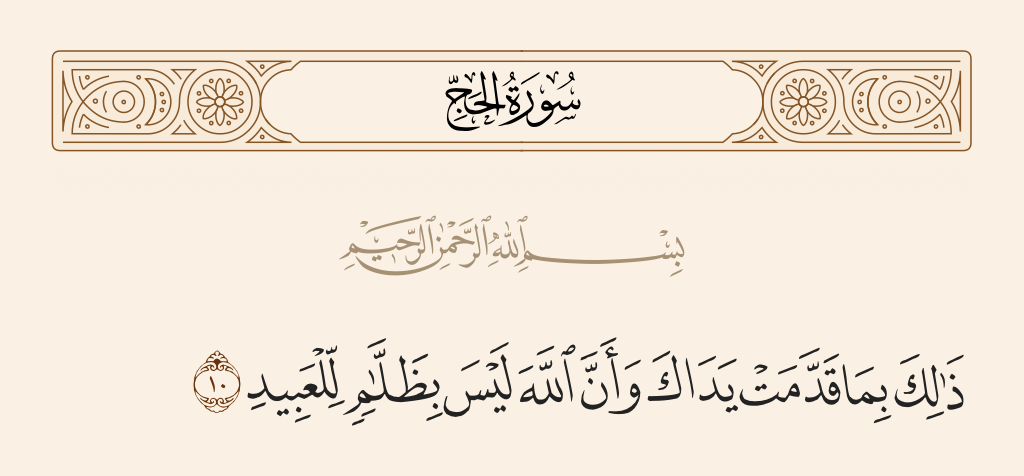 سُورَةُ الْحَجِّ
بِسْمِ ٱللَّهِ ٱلرَّحْمَٰنِ ٱلرَّحِيمِ
ذَٰلِكَ بِمَا قَدَّمَتْ يَدَاكَ وَأَنَّ ٱللَّهَ لَيْسَ بِظَلَّٰمٍ لِّلْعَبِيدِ ١٠